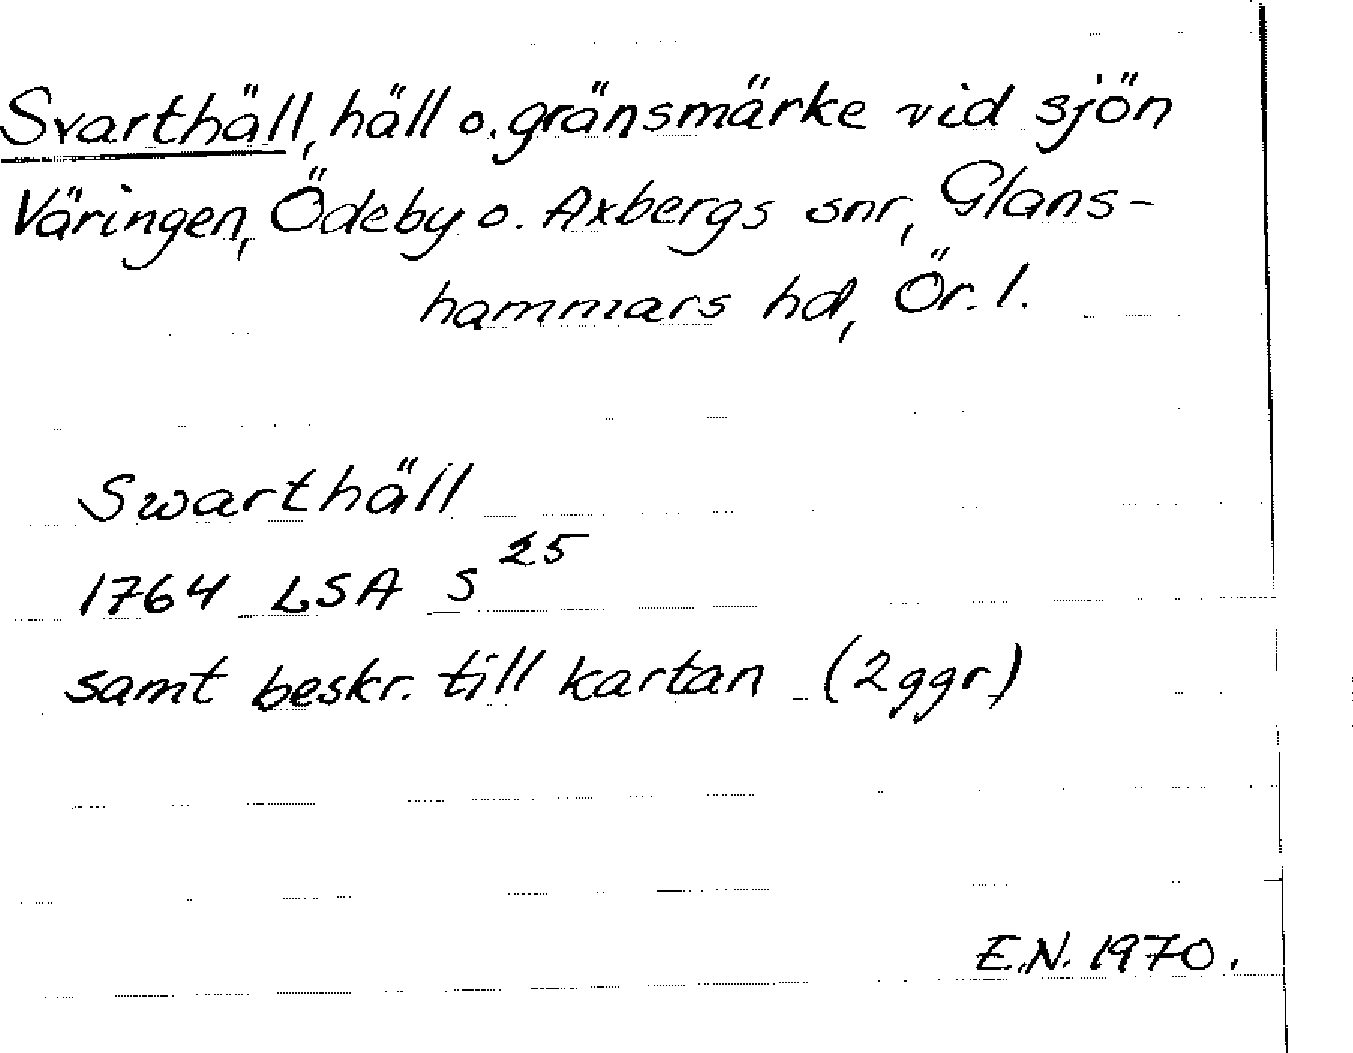 Svarthäll, häll o. gränsmärke vid sjön
Väringen, Ödeby o. Axbergs snr, Glans-
hammars hd, Ör. l.
Swarthäll
1764 LSA S 25
samt beskr. till kartan (2ggr)
E.N. 1970.